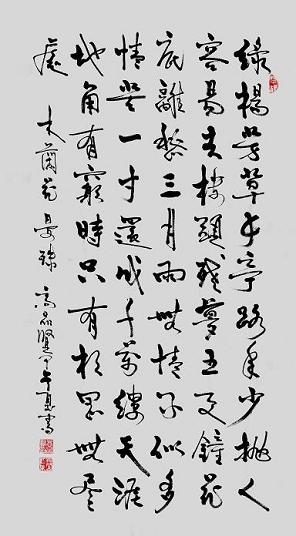 綠楊芳草長亭路年少拋人
容易去樓頭殘夢五更鐘花
底離愁三月雨無情不似多
情苦一寸還成千萬縷天涯
地角有窮時只有相思無盡
處 木蘭花 晏殊 高品賢甲午夏書